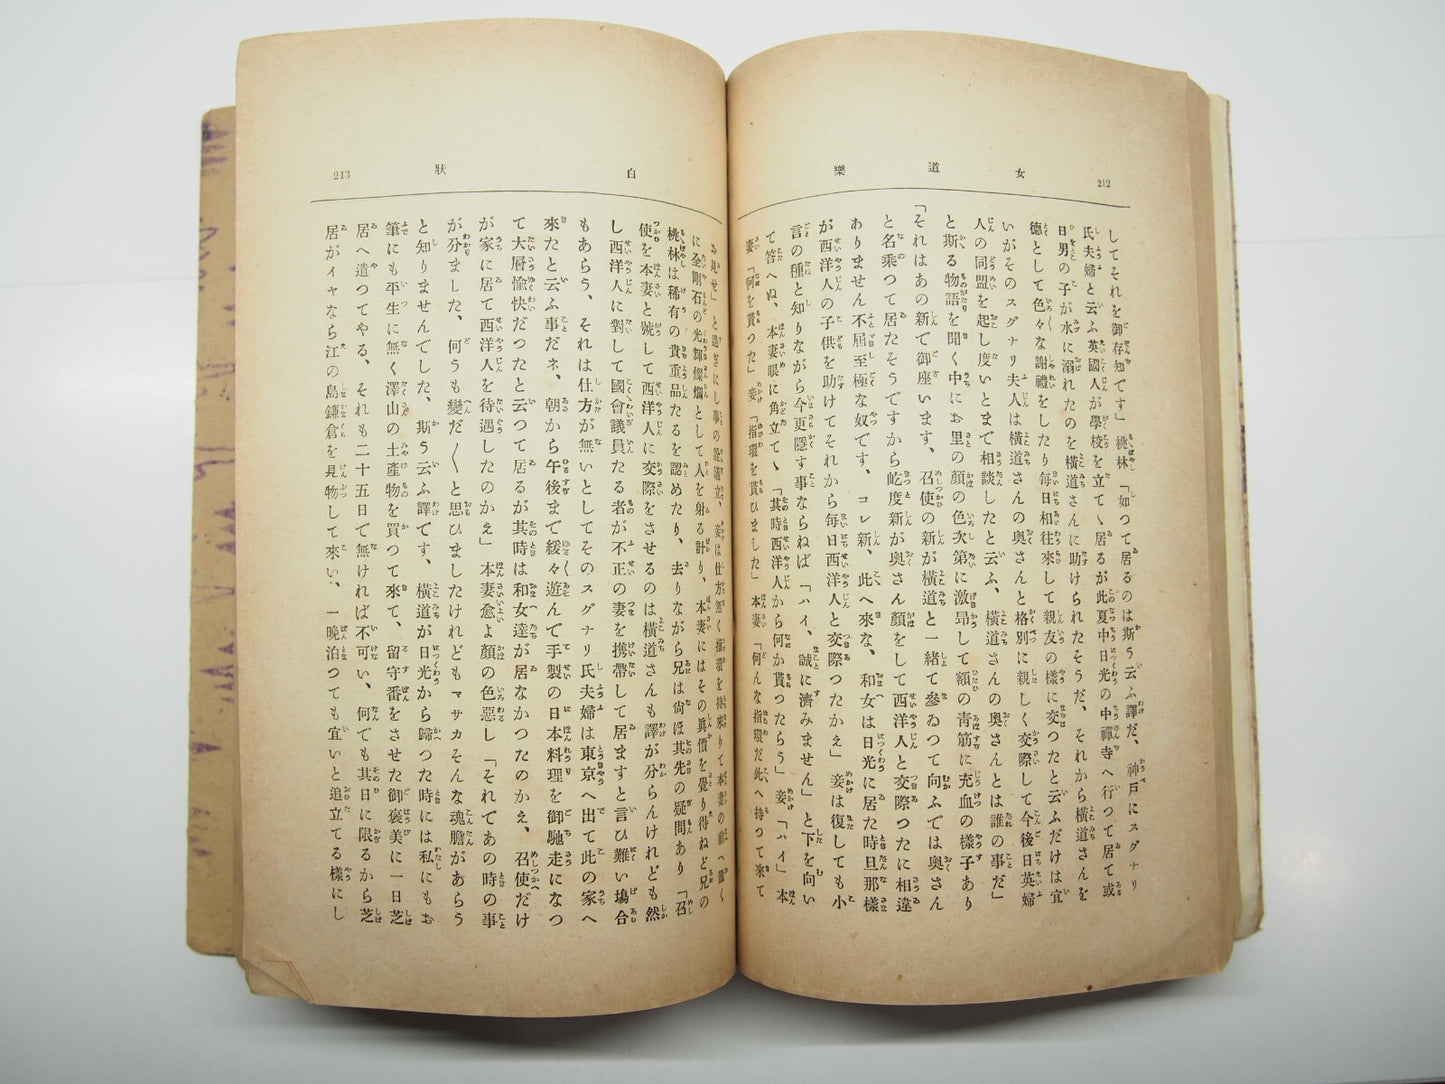 212
女道樂
してそれを御存知です」桃林「如つて居るのは斯う云ふ譯だ、神戸にスグナリ
氏夫婦と云ふ英國人が學校を立てゝ居るが此夏中日光の中禪寺へ行つて居て或
日男の子が水に溺れたのを横道さんに助けられたそうだ、それから横道さんを
德として色々な謝禮をしたり毎日相往來して親友の樣に交つたと云ふだけは宜
いがそのスグナリ夫人は横道さんの奥さんと格別に親しく交際して今後日英婦
人の同盟を起し度いとまで相談したと云ふ、横道さんの奥さんとは誰の事だ」
と斯る物語を聞く中にお里の顔の色次第に激昂して額の青筋に充血の樣子あり
「それはあの新で御座います、召使の新が横道と一緒て參ゐつて向ふでは奥さん
と名乘つて居たそうですから屹度新が奥さん顔をして西洋人と交際つたに相違
ありません不屆至極な奴です、コレ新、此へ來な、和女は日光に居た時旦那樣
が西洋人の子供を助けてそれから毎日西洋人と交際つたかえ」妾は復しても小
言の種と知りながら今更隱す事ならねば「ハイ、誠に濟みません」と下を向い
て答へぬ、本妻眼に角立てゝ「其時西洋人から何か貰つたらう」妾「ハイ」本
妻「何を貰つた」妾「指環を貰ひました」本妻「何んな指環だ此へ持つて來て
213
白狀
お見せ」と過ぎにし事の詮議立、妾は仕方無く指環を持來りて本妻の前へ置く
に金剛石の光輝燦爛として人を射る計り、本妻にはその眞價を覺り得ねど兄の
桃林は稀有の貴重品たるを認めたり、去りながら兄は尙ほ其先の疑問あり「召
使を本妻と號して西洋人に交際をさせるのは横道さんも譯が分らんけれども然
し西洋人に對して國會議員たる者が不正の妻を携帶して居ますと言ひ難い塲合
もあらう、それは仕方が無いとしてそのスグナリ氏夫婦は東京へ出て此の家へ
來たと云ふ事だネ、朝から午後まで緩々遊んで手製の日本料理を御馳走になつ
て大層愉快だつたと云つて居るが其時は和女達が居なかつたのかえ、召使だけ
が家に居て西洋人を待遇したのかえ」本妻愈よ顔の色惡し「それであの時の事
が分ました、何うも變だ〱と思ひましたけれどもマサカそんな魂膽があらう
と知りませんでした、斯う云ふ譯です、横道が日光から歸つた時には私にもお
筆にも平生に無く澤山の土產物を買つて來て、留守番をさせた御褒美に一日芝
居へ遣つてやる、それも二十五日で無ければ不可い、何でも其日に限るから芝
居がイヤなら江の島鎌倉を見物して來い、一晩泊つても宜いと追立てる樣にし